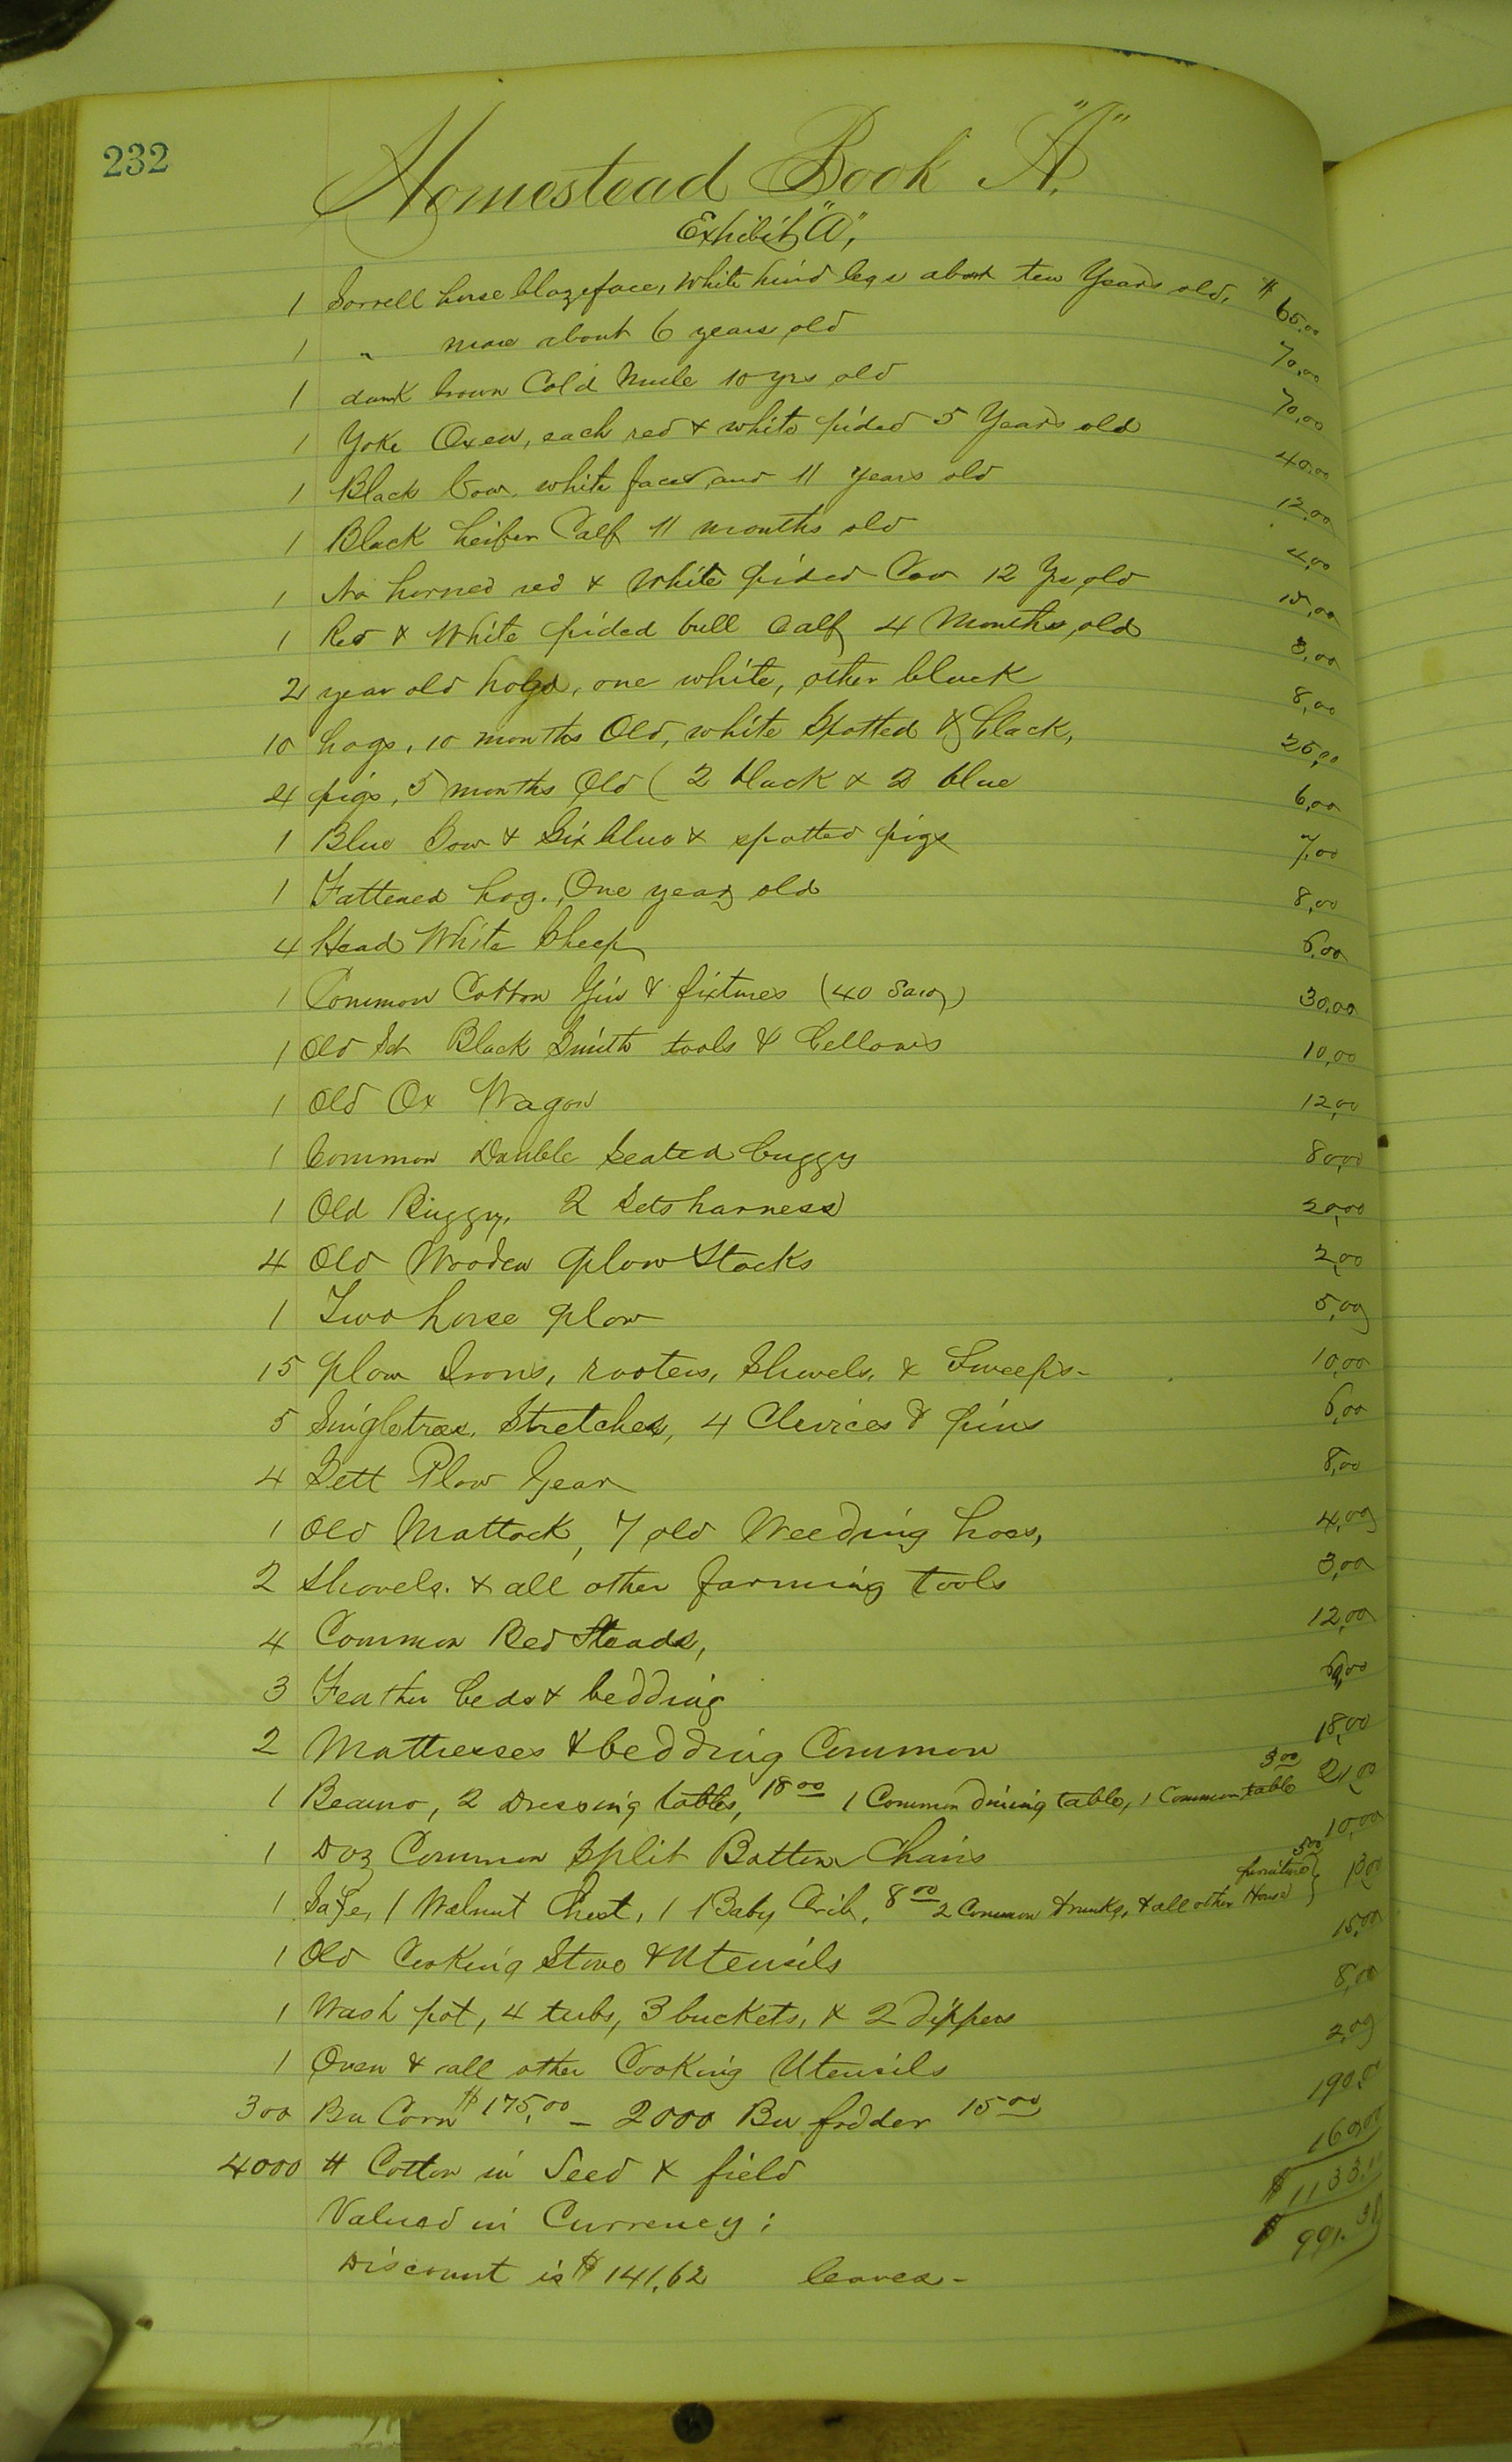 232
Homestead Book "A".
Exhibit "A",
1 Sorrell horse blazeface, white hind legs about ten Years old, $ 65,00
1 " mare about 6 years old 70,00
1 dark brown Cold Mule 10 yrs old 70,00
1 Yoke Oxen, each red & white pided 5 Years old 40,00
1 Black Cow, white faced and 11 years old 12,00
1 Black heifer Calf 11 months old 4,00
1 No horned red & White pided Cow 12 Yrs old 15,00
1 Red & White pided bull Calf 4 Months old 3,00
2 year old hogs, one white, other black 8,00
10 hogs, 10 months Old, white Spotted & black, 25,00
4 pigs, 5 months Old ( 2 black & 2 blue 6,00
1 Blue Sow & Six blue & spotted pigs 7,00
1 Fattened hog. One year old 8,00
4 Head White Sheep 6,00
1 Common Cotton Gin & fixtures (40 Saw) 30,00
1 Old Set Black Smith tools & bellows 10,00
1 Old Ox Wagon 12,00
1 Common Double Seated buggy 80,00
1 Old Buggy, 2 Sets harness 20,00
4 Old Wooden plow Stocks 2,00
1 Two horse plow 5,00
15 plow Irons, rooters, Shovels, & Sweeps - 10,00
5 Singletrees, Stretches, 4 Clevices & pins 6,00
4 Sett Plow Gear 8,00
1 Old Mattock, 7 old Weeding hoes, 4,00
2 Shovels. & all other farming tools 3,00
4 Common Bed Steads, 12,00
3 Feather beds & bedding
2 Mattresses & bedding Common 18,00
1 Beauro, 2 Dressing tables, 18 00 1 Common dining table, 1 Common table 3 00 21,00
1 Doz Common Split Bottom Chairs 10,00
1 Safe, 1 Walnut Chest, 1 Baby Crib, 8 00 2 Common trunks, & all other House furniture } 5 00 13,00
1 Old Cooking Stove & Utensils 15,00
1 Wash pot, 4 tubs, 3 buckets, & 2 dippers 8,00
1 Oven & all other Cooking Utensils 2,00
300 Bu Corn $175,00 - 2000 Bu fodder 15 00 190,
4000 # Cotton in Seed & field 160,00
Valued in Currency; $ 1133,
Discount is $141,62 leaves - $ 991.